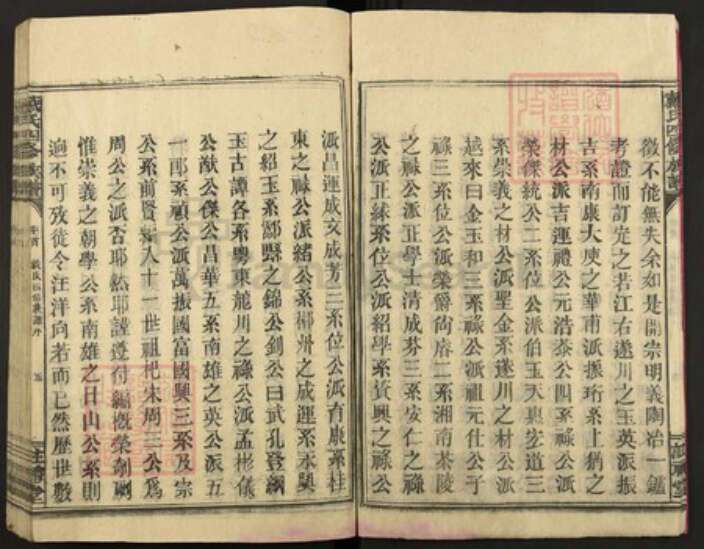 徵不能無失余如是開崇明義陶冶一鑑
考證而訂定之若江右遂川之玉英派振
吉系南康大庾之華甫派振珩系上猶之
材公派吉運禮公元浩泰公四系祿公派
榮傑統公二系位公派伯玉天與宏道三
系崇義之材公派聖金系遂川之材公派
越來曰金玉和三系祿公派祖元仕公于
祿三系位公派榮爵尚廎二系湘南茶陵
之祿公派正學士清成芬三系安仁之祿
公派正綵系位公派紹學系資興之祿公
派昌運成文成芳三系位公派育康系桂
東之祿公派緒公系郴州之成運系永興
之紹玉系酃縣之錦公釗公曰武孔登綱
玉古譚各系粵東龍川之祿公派孟彬儀
公猷公傑公昌華五系南雄之英公派五
一郎系禎公派萬振國富國興三系及宗
公系前賢點入十一世祖杞宋周三公爲
周公之派否耶然耶謹遵付編概榮剞劂
惟崇義之朝學公系南雄之日山公系則
遍不可攷徒令汪洋向若而已然歷世數
戴氏四修族譜
卷首
戴氏四修族譜序
五
注禮堂